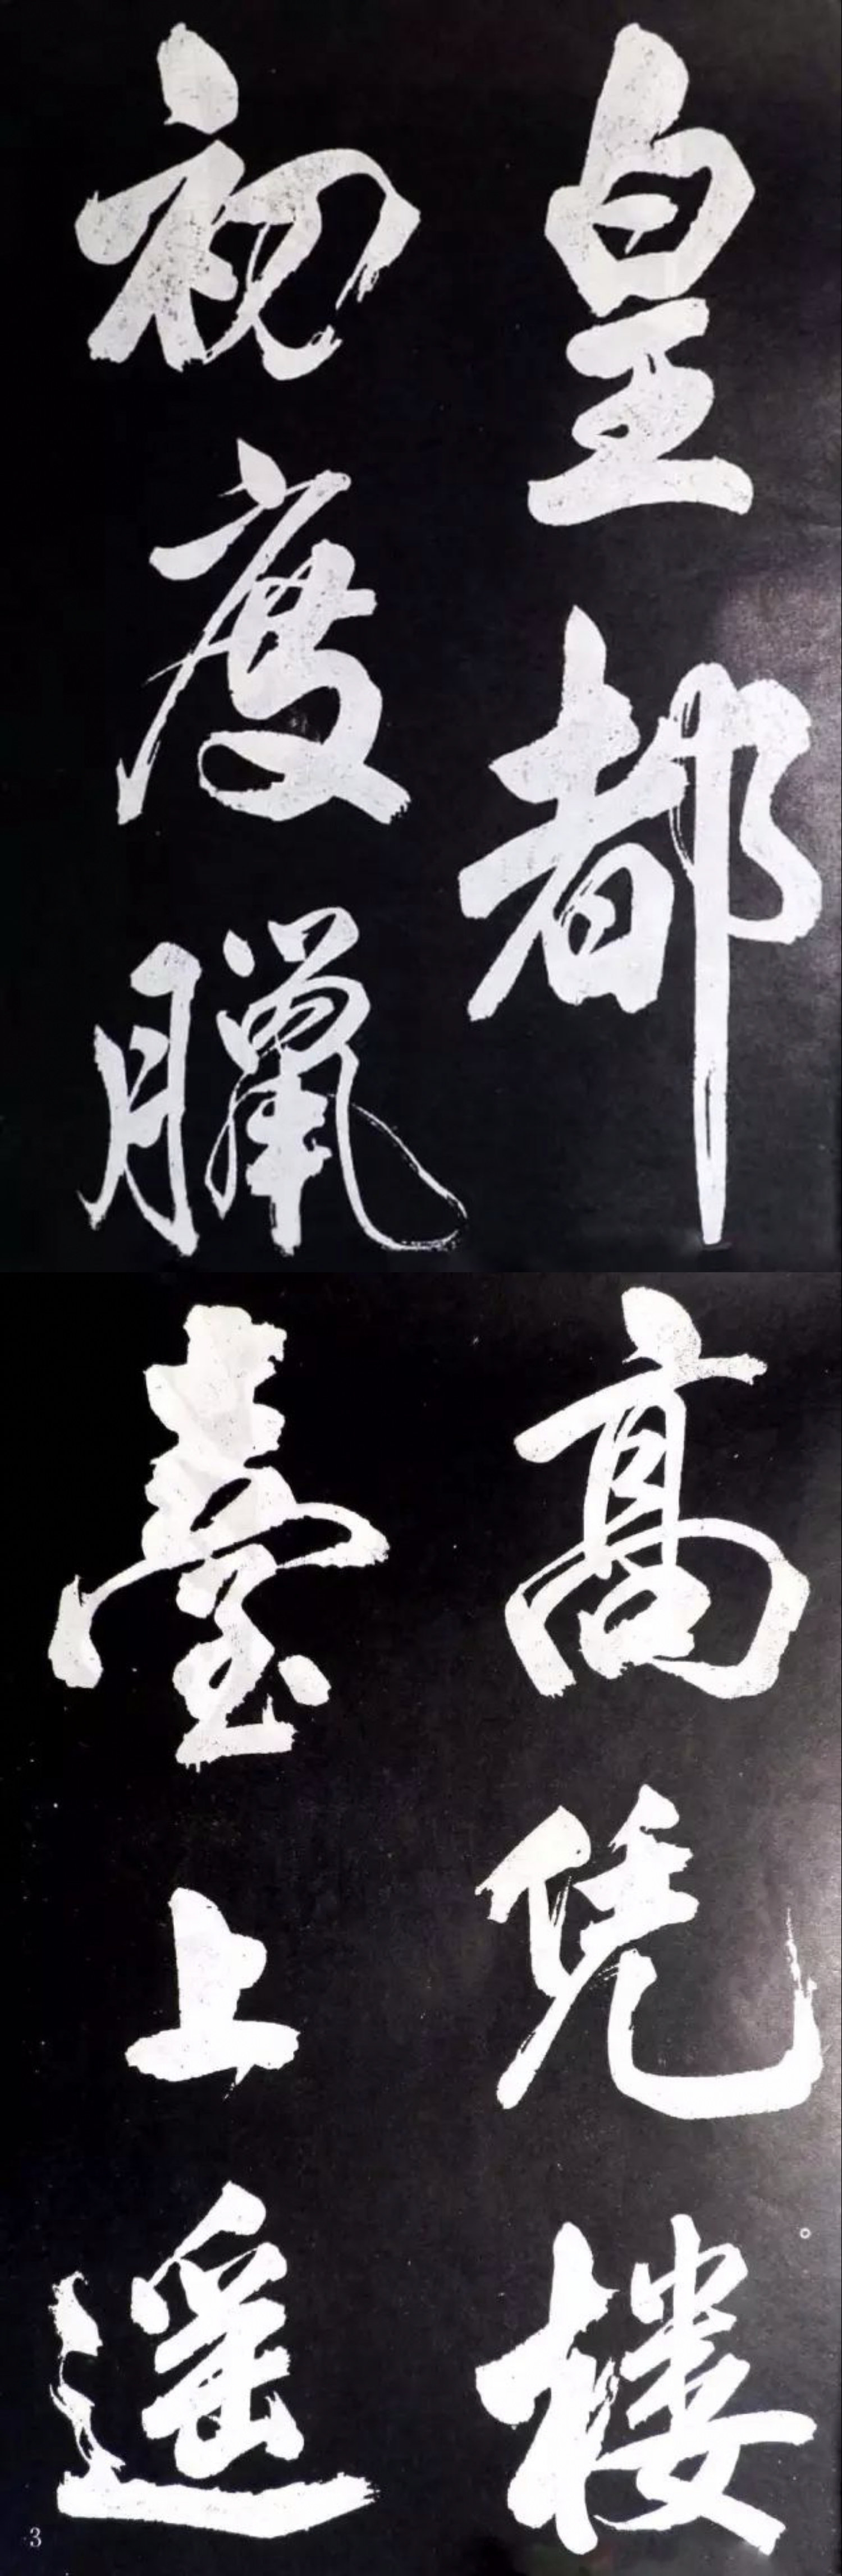 皇都
初度臘
高凭樓
臺上遥
3